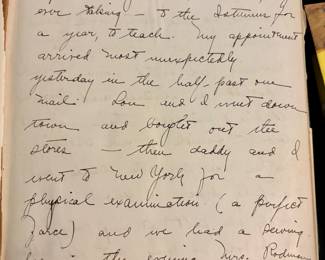 ever taking – to the Isthmus for
a year, to teach. My appointment
arrived most unexpectedly
yesterday in the half-past one
mail. Lou and I went down
town and bought out the
stores – then daddy and I
went to New York for a
physical examination (a perfect
farce) and we had a sewing
in the evening. Mrs. Rodman